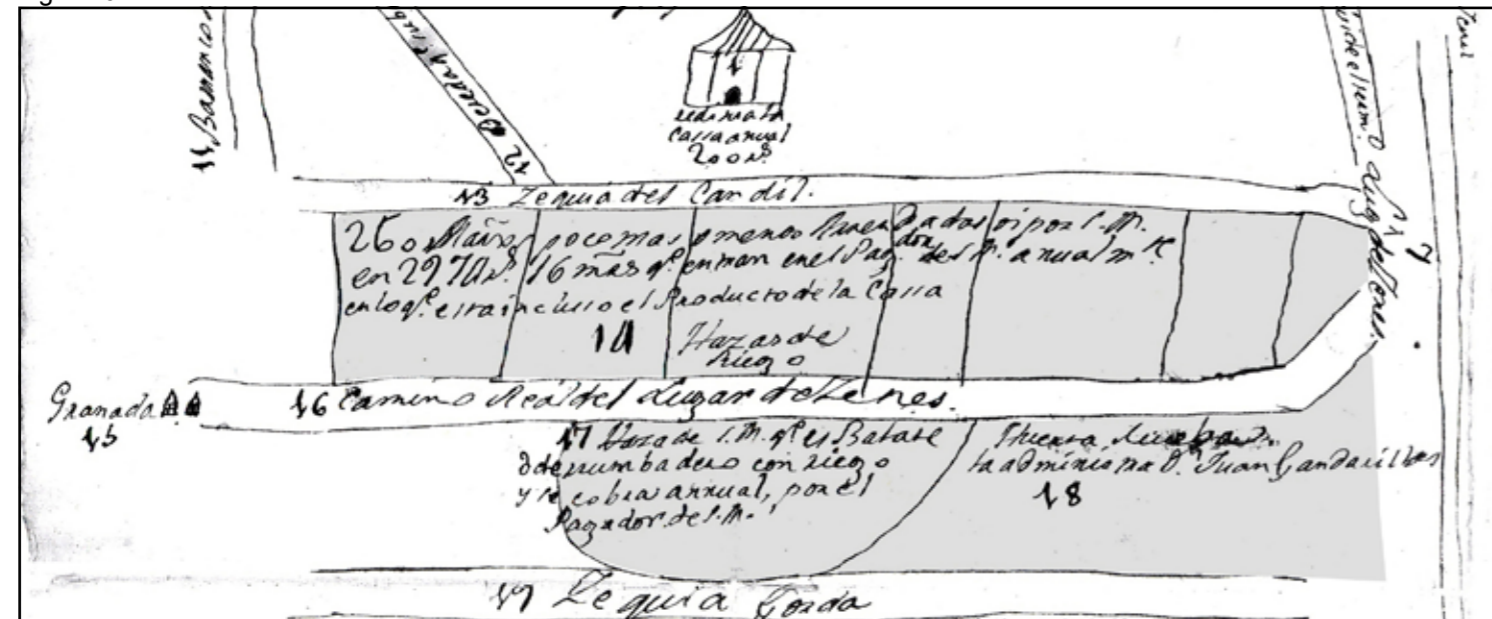 11 Barranco
12 Veredas
1
Cassa anual
200 Rs.
13 Zequia del Candil.
260 Mars. poco mas o menos Arrendadas oi por S. M.
en 2970 Rs. 16 mãs qe. entran en el Pagdor. de S. M. anualmte.
en lo qe. esta incluso el Producto de la Cassa
14 Hazas de
Riego
17 Lugar de Zenes.
Granada
15
16 Camino Reàl del Lugar de Zenes.
17 Haza de S. M. qe. es Batate
o derrumbadero con riego
y se cobra anual, por èl
Pagador. de S. M.
Huerta
la administra D. Juan Gandarillas
18
19 Zequia Gorda